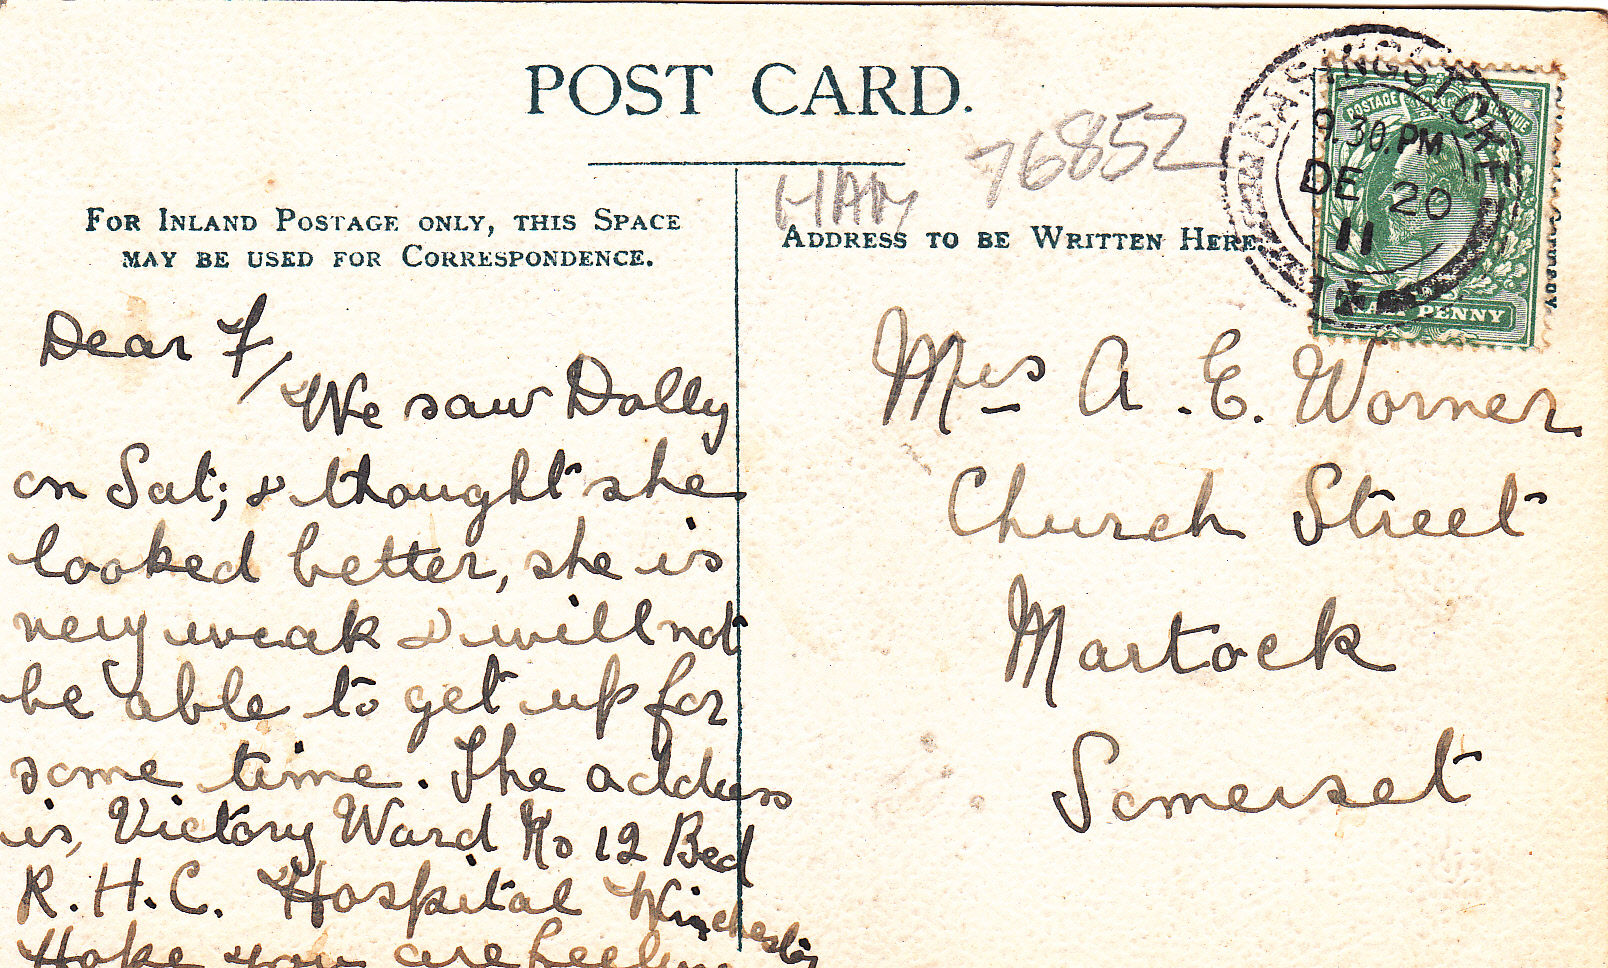 POST CARD.
HAM 76852
BASINGSTOKE
9.30.PM
DE 20
11
POSTAGE REVENUE
HALF PENNY
FOR INLAND POSTAGE ONLY, THIS SPACE
MAY BE USED FOR CORRESPONDENCE.
ADDRESS TO BE WRITTEN HERE
Dear F,
We saw Dolly
on Sat; & thought she
looked better, she is
very weak & will not
be able to get up for
some time. The address
is, Victory Ward No 12 Bed
R.H.C. Hospital Winchester
Hope you are feeling
Mrs A.E. Worner
Church Street
Martock
Somerset